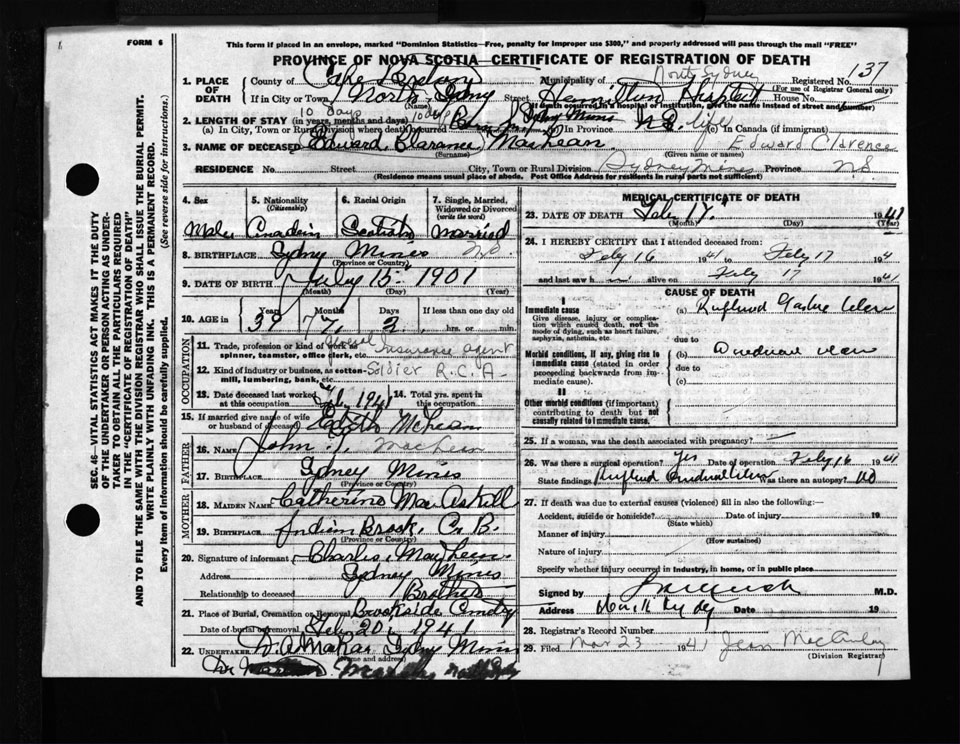 FORM 6
This form if placed in an envelope, marked "Dominion Statistics—Free, penalty for improper use $300," and properly addressed will pass through the mail "FREE"
PROVINCE OF NOVA SCOTIA CERTIFICATE OF REGISTRATION OF DEATH
SEC. 46—VITAL STATISTICS ACT MAKES IT THE DUTY
OF THE UNDERTAKER OR PERSON ACTING AS UNDER-
TAKER TO OBTAIN ALL THE PARTICULARS REQUIRED
IN THE "CERTIFICATE OF REGISTRATION OF DEATH"
AND TO FILE THE SAME WITH THE DIVISION REGISTRAR WHO SHALL ISSUE THE BURIAL PERMIT.
WRITE PLAINLY WITH UNFADING INK. THIS IS A PERMANENT RECORD.
Every item of information should be carefully supplied. (See reverse side for instructions.)
1. PLACE OF DEATH County of Cape Breton Municipality of North Sydney Registered No. 137
(For use of Registrar General only)
If in City or Town North Sydney Street Hamilton Hospital House No.
(If death occurred in a hospital or institution, give the name instead of street and number)
2. LENGTH OF STAY (in years, months and days) 10 days Sydney Mines
(a) In City, Town or Rural Division where death occurred 10 days In Province N.S. life (c) In Canada (if immigrant)
3. NAME OF DECEASED Edward Clarance MacLean Edward Clarence
(Surname) (Given name or names)
RESIDENCE No. Street City, Town or Rural Division Sydney Mines Province NS
(Residence means usual place of abode. Post Office Address for residents in rural parts not sufficient)
4. Sex Male
5. Nationality (Citizenship) Canadian
6. Racial Origin Scotish
7. Single, Married, Widowed or Divorced (write the word) married
8. BIRTHPLACE Sydney Mines N.S.
(Province or Country)
9. DATE OF BIRTH July 15 1901
(Month) (Day) (Year)
10. AGE in Years 39 Months 7 Days 2 If less than one day old
hrs. or min.
OCCUPATION
11. Trade, profession or kind of work as Insurance agent
spinner, teamster, office clerk, etc.
12. Kind of industry or business, as cotton- Soldier R.C.A.
mill, lumbering, bank, etc.
13. Date deceased last worked at this occupation 1941
14. Total yrs. spent in this occupation
15. If married give name of wife or husband of deceased Edith McLean
FATHER
16. NAME John MacLean
17. BIRTHPLACE Sydney Mines
(Province or Country)
MOTHER
18. MAIDEN NAME Catherine MacAskill
19. BIRTHPLACE Indian Brook, C.B.
(Province or Country)
20. Signature of informant Charles MacLean
Address Sydney Mines
Relationship to deceased Brother
21. Place of Burial, Cremation or Removal Brookside Cmtry
Date of burial or removal Feb. 20, 1941
22. UNDERTAKER Sydney Mines
(Name and address)
MEDICAL CERTIFICATE OF DEATH
23. DATE OF DEATH Feb 17 1941
(Month) (Day) (Year)
24. I HEREBY CERTIFY that I attended deceased from:
Feby 16 1941 to Feby 17 194
and last saw h alive on Feby 17 1941
CAUSE OF DEATH
I
Immediate cause
Give disease, injury or complica-
tion which caused death, not the
mode of dying, such as heart failure,
asphyxia, asthenia, etc.
(a)
due to
Morbid conditions, if any, giving rise to
immediate cause (stated in order
proceeding backwards from im-
mediate cause).
(b)
due to
(c)
II
Other morbid conditions (if important)
contributing to death but not
causally related to immediate cause.
25. If a woman, was the death associated with pregnancy?
26. Was there a surgical operation? Yes Date of operation Feby 16 1941
State findings Was there an autopsy? No
27. If death was due to external causes (violence) fill in also the following:—
Accident, suicide or homicide? Date of injury 19
(State which)
Manner of injury
(How sustained)
Nature of injury
Specify whether injury occurred in industry, in home, or in public place
Signed by M.D.
Address Date 19
28. Registrar's Record Number
29. Filed Mar 23 1941 Jean
(Division Registrar)